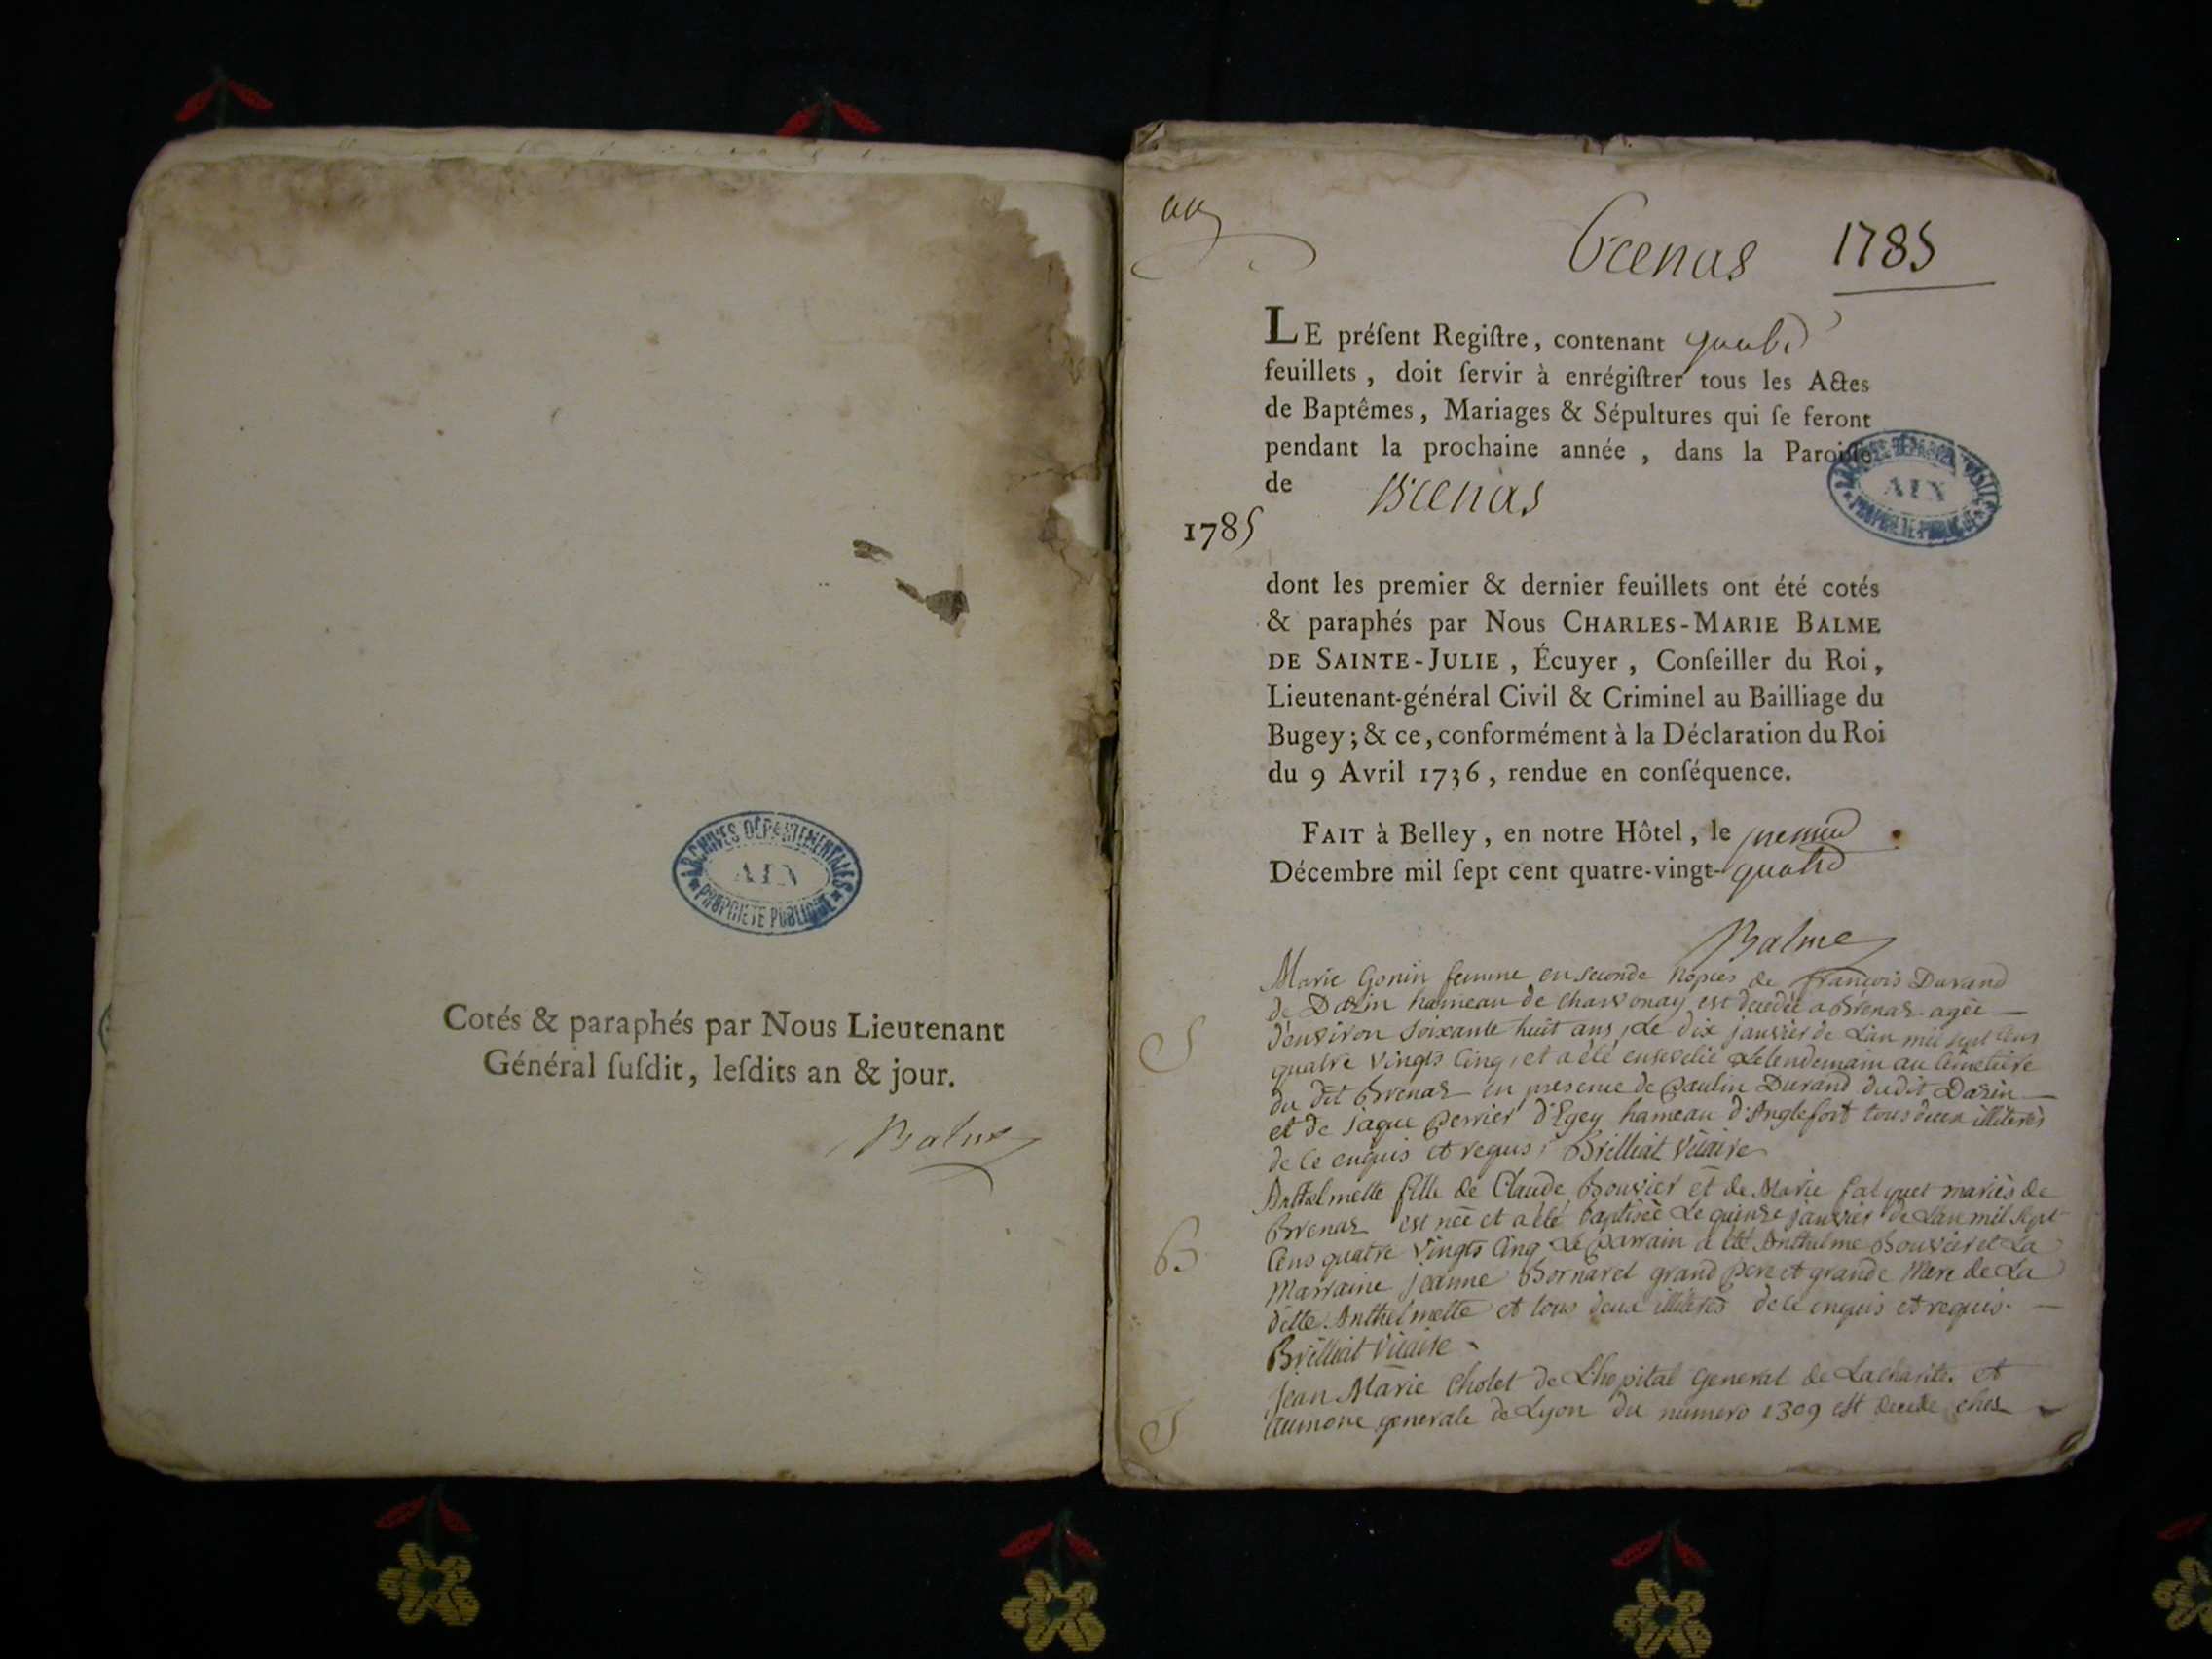 Cotés & paraphés par Nous Lieutenant
Général ſuſdit, leſdits an & jour.
Balme
ARCHIVES DÉPARTEMENTALES
AIN
PROPRIÉTÉ PUBLIQUE
Brenas 1785
LE préſent Regiſtre, contenant quatre
feuillets, doit ſervir à enrégiſtrer tous les Actes
de Baptêmes, Mariages & Sépultures qui ſe feront
pendant la prochaine année, dans la Paroiſſe
de Brenas
1785
AIN
PROPRIÉTÉ PUBLIQUE
dont les premier & dernier feuillets ont été cotés
& paraphés par Nous CHARLES-MARIE BALME
DE SAINTE-JULIE, Écuyer, Conſeiller du Roi,
Lieutenant-général Civil & Criminel au Bailliage du
Bugey; & ce, conformément à la Déclaration du Roi
du 9 Avril 1736, rendue en conſéquence.
FAIT à Belley, en notre Hôtel, le premier
Décembre mil ſept cent quatre-vingt-quatre
Balme
Marie Gonin femme en seconde nopces de françois Durand
de Dazin hameau de chavvonay est decedée a Brenaz agée
S
d'environ soixante huit ans, Le dix janvier de L'an mil sept cens
quatre vingts cinq, et a été ensevelie Le lendemain au Cimetiere
du dit Brenaz en presence de paulin Durand dudit Dazin
et de jaque perrier d'Egey hameau d'Anglefort tous deux illiterés
de ce enquis et requis, Brilliat Vicaire
Anthelmette fille de Claude Bouvier et de Marie falquet mariés de
Brenaz est née et a été baptisée Le quinze janvier de L'an mil sept
B
cens quatre vingts cinq Le parrain a été Anthelme Bouvier et La
Marraine jeanne Bornarel grand pere et grande Mere de La
ditte Anthelmette et tous deux illiterés de ce enquis et requis.
Brilliat Vicaire
jean Marie Cholet de L'hopital General de La charité et
S
aumone generale de Lyon du numero 1309 est decede chez